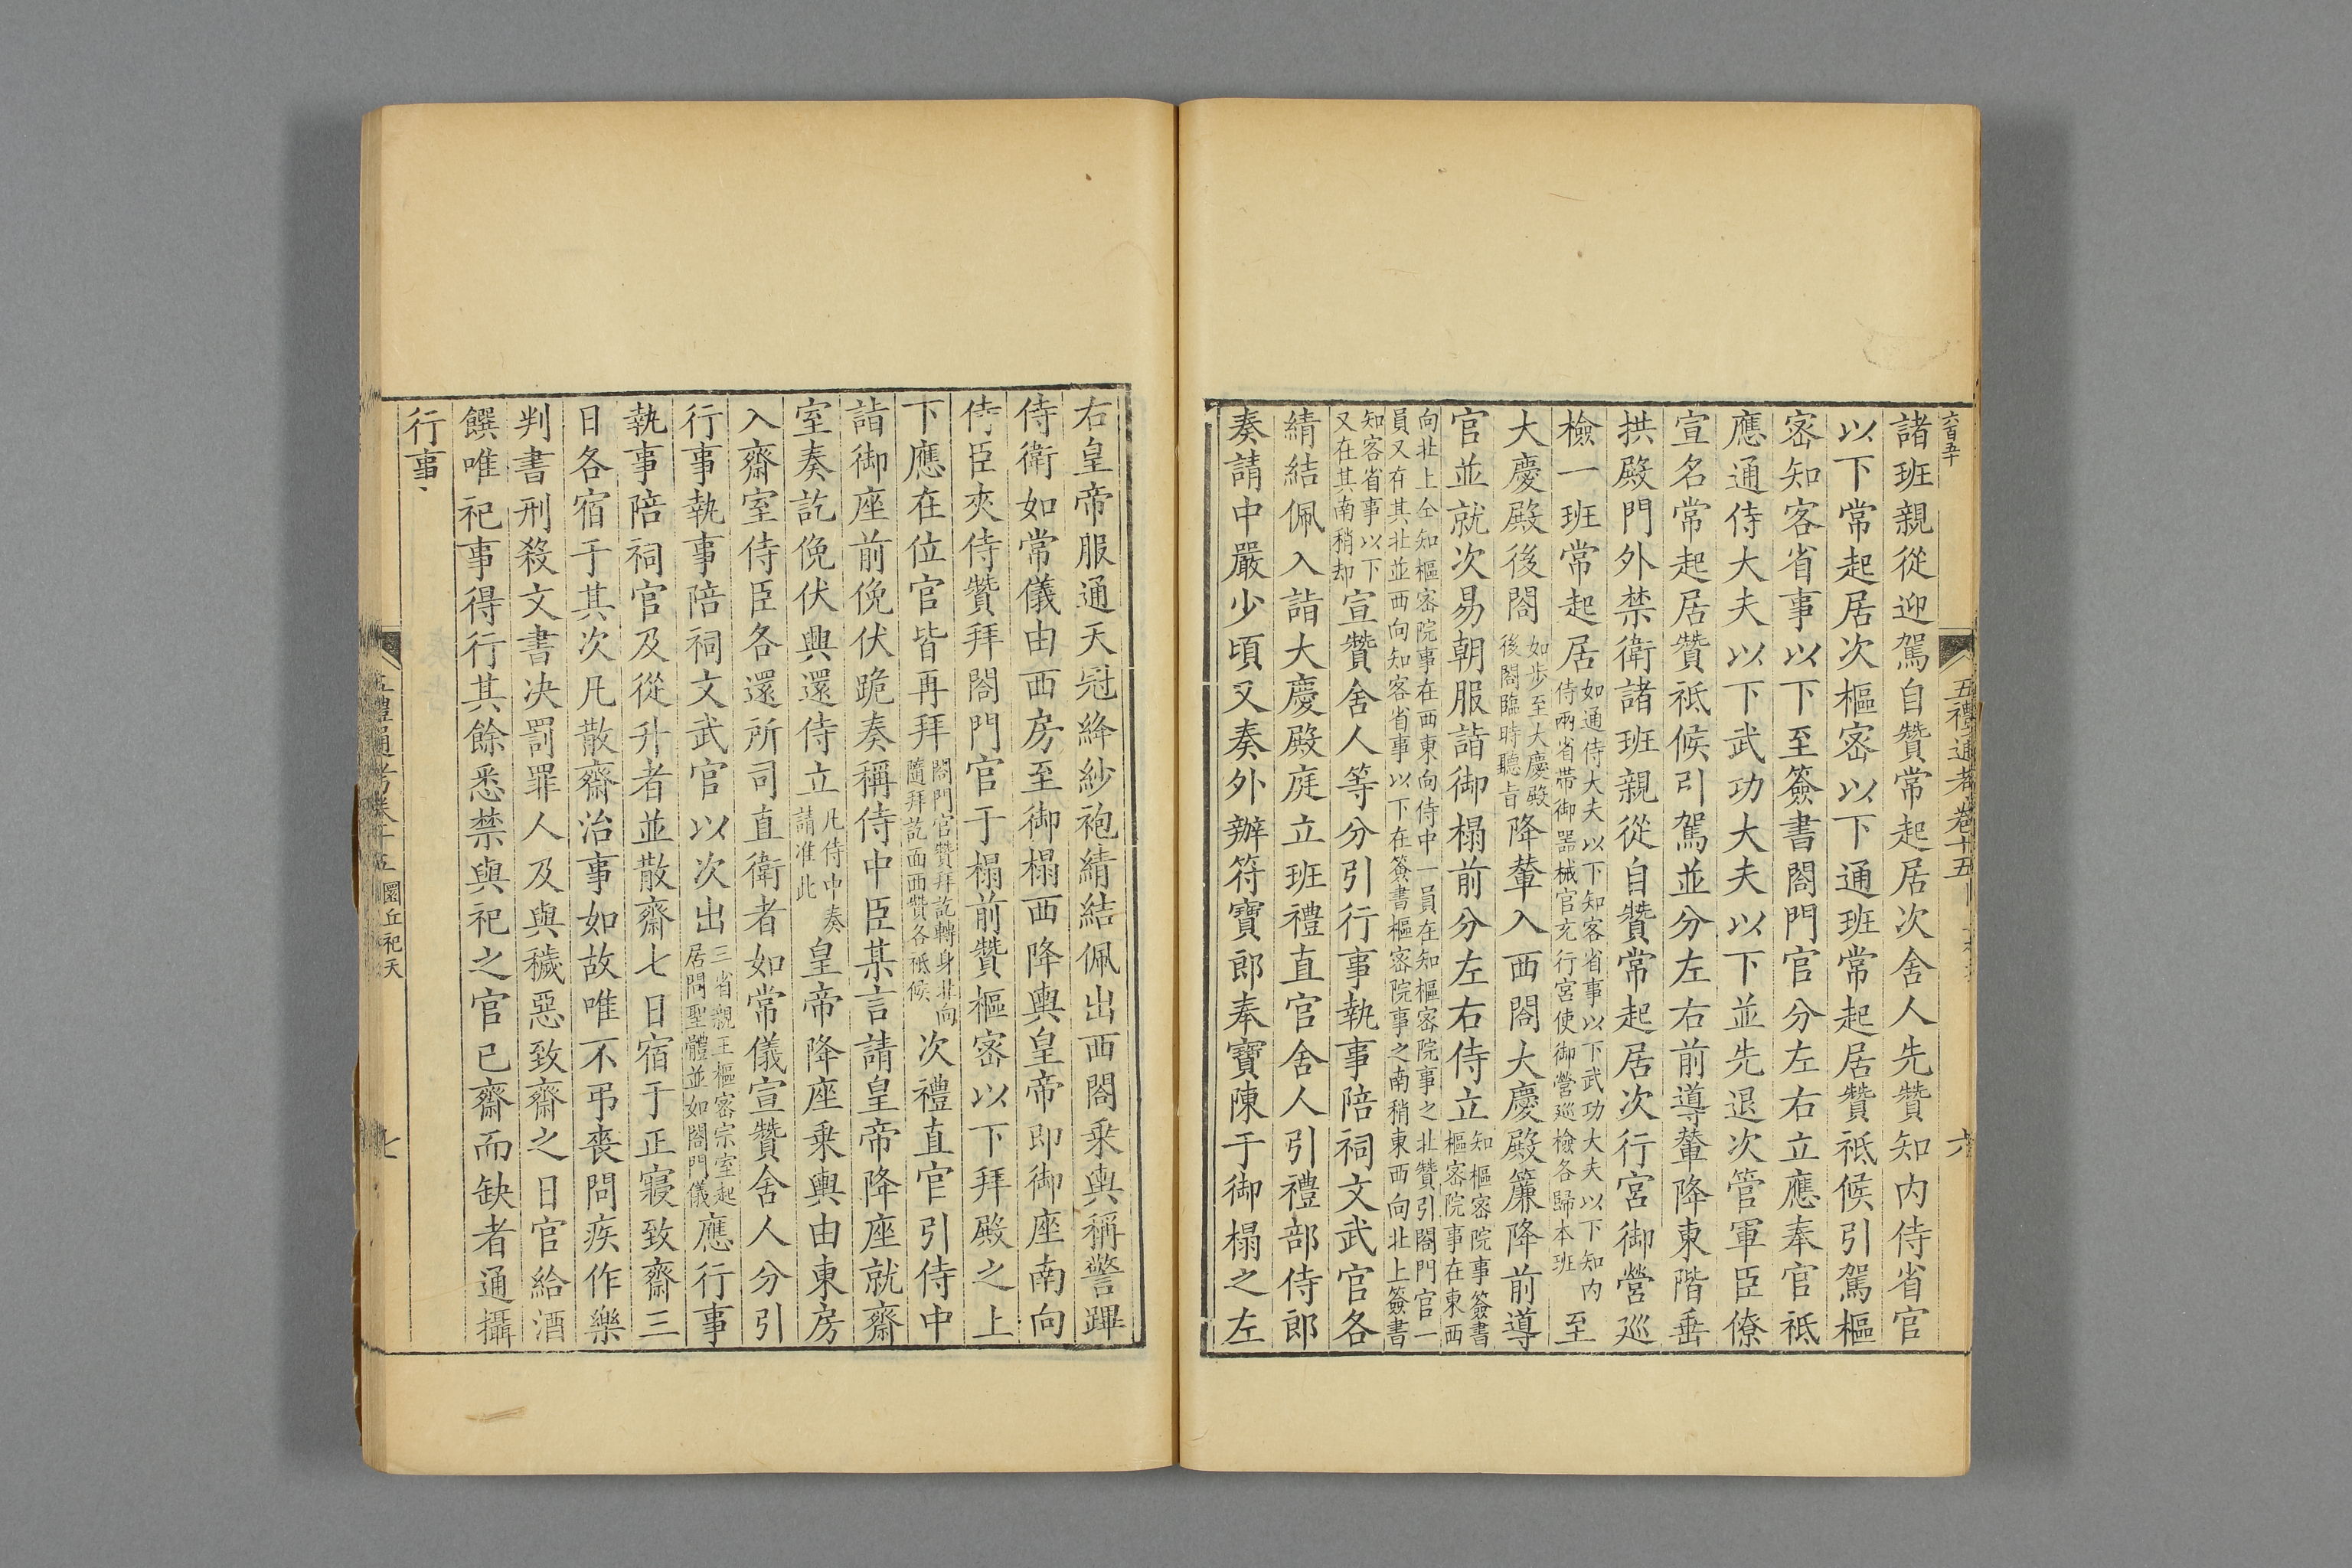 六百五十
五禮通考卷十五
六
諸班親從迎駕自贊常起居次舍人先贊知內侍省官
以下常起居次樞密以下通班常起居贊祇候引駕樞
密知客省事以下至簽書閤門官分左右立應奉官祇
應通侍大夫以下武功大夫以下並先退次管軍臣僚
宣名常起居贊祇候引駕並分左右前導輦降東階垂
拱殿門外禁衛諸班親從自贊常起居次行宮御營巡
檢一班常起居如通侍大夫以下知客省事以下武功大夫以下知內侍兩省帶御器械官充行宮使御營巡檢各歸本班至
大慶殿後閤如步至大慶殿後閤臨時聽旨降輦入西閤大慶殿簾降前導
官並就次易朝服詣御榻前分左右侍立知樞密院事簽書樞密院事在東西
向北上仝知樞密院事在西東向侍中一員在知樞密院事之北贊引閤門官一員又在其北並西向知客省事以下在簽書樞密院事之南稍東西向北上簽書
知客省事以下又在其南稍却宣贊舍人等分引行事執事陪祠文武官各
績結佩入詣大慶殿庭立班禮直官舍人引禮部侍郎
奏請中嚴少頃又奏外辦符寶郎奉寶陳于御榻之左
右皇帝服通天冠絳紗袍績結佩出西閤乗輿稱警蹕
侍衛如常儀由西房至御榻西降輿皇帝即御座南向
侍臣夾侍贊拜閤門官于榻前贊樞密以下拜殿之上
下應在位官皆再拜閤門官贊拜訖轉身北向隨拜訖面西贊各祇候次禮直官引侍中
詣御座前俛伏跪奏稱侍中臣某言請皇帝降座就齋
室奏訖俛伏興還侍立凡侍中奏請准此皇帝降座乗輿由東房
入齋室侍臣各還所司直衛者如常儀宣贊舍人分引
行事執事陪祠文武官以次出三省親王樞密宗室起居問聖體並如閤門儀應行事
執事陪祠官及從升者並散齋七日宿于正寢致齋三
日各宿于其次凡散齋治事如故唯不弔喪問疾作樂
判書刑殺文書決罰罪人及與穢惡致齋之日官給酒
饌唯祀事得行其餘悉禁與祀之官已齋而缺者通攝
行事
五禮通考卷十五 圜丘祀天
七